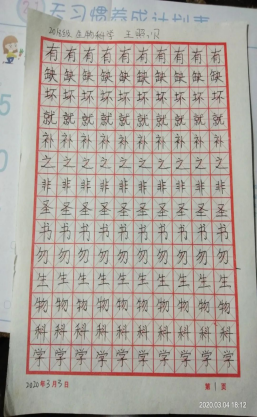 学习惯养成计划表
生物科学
有有有有有有有有有
缺缺缺缺缺缺缺缺缺
坏坏坏坏坏坏坏坏坏
就就就就就就就就就
补补补补补补补补补
之之之之之之之之之
非非非非非非非非非
圣圣圣圣圣圣圣圣圣
书书书书书书书书书
勿勿勿勿勿勿勿勿勿
生生生生生生生生生
物物物物物物物物物
科科科科科科科科科
学学学学学学学学学
2020年3月3日 第1页
2020.03.04 18:12